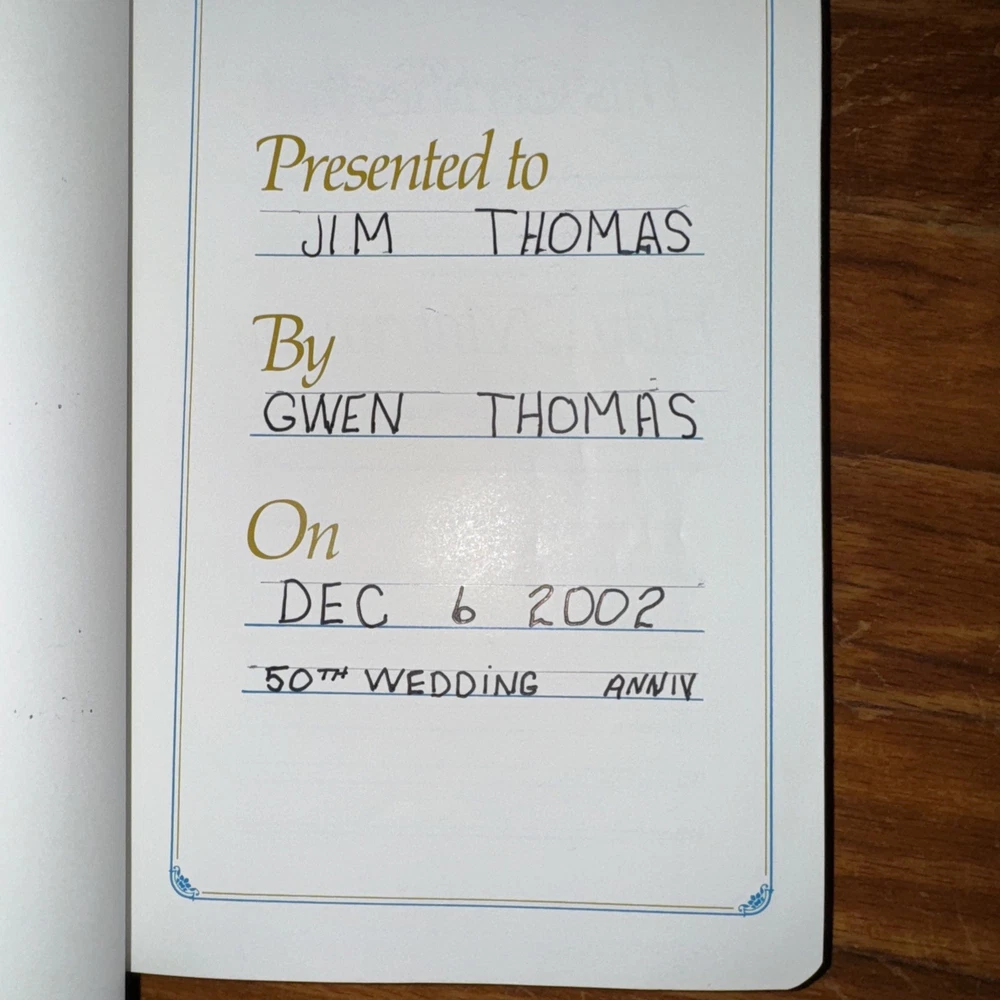 Presented to
JIM THOMAS
By
GWEN THOMAS
On
DEC 6 2002
50TH WEDDING ANNIV